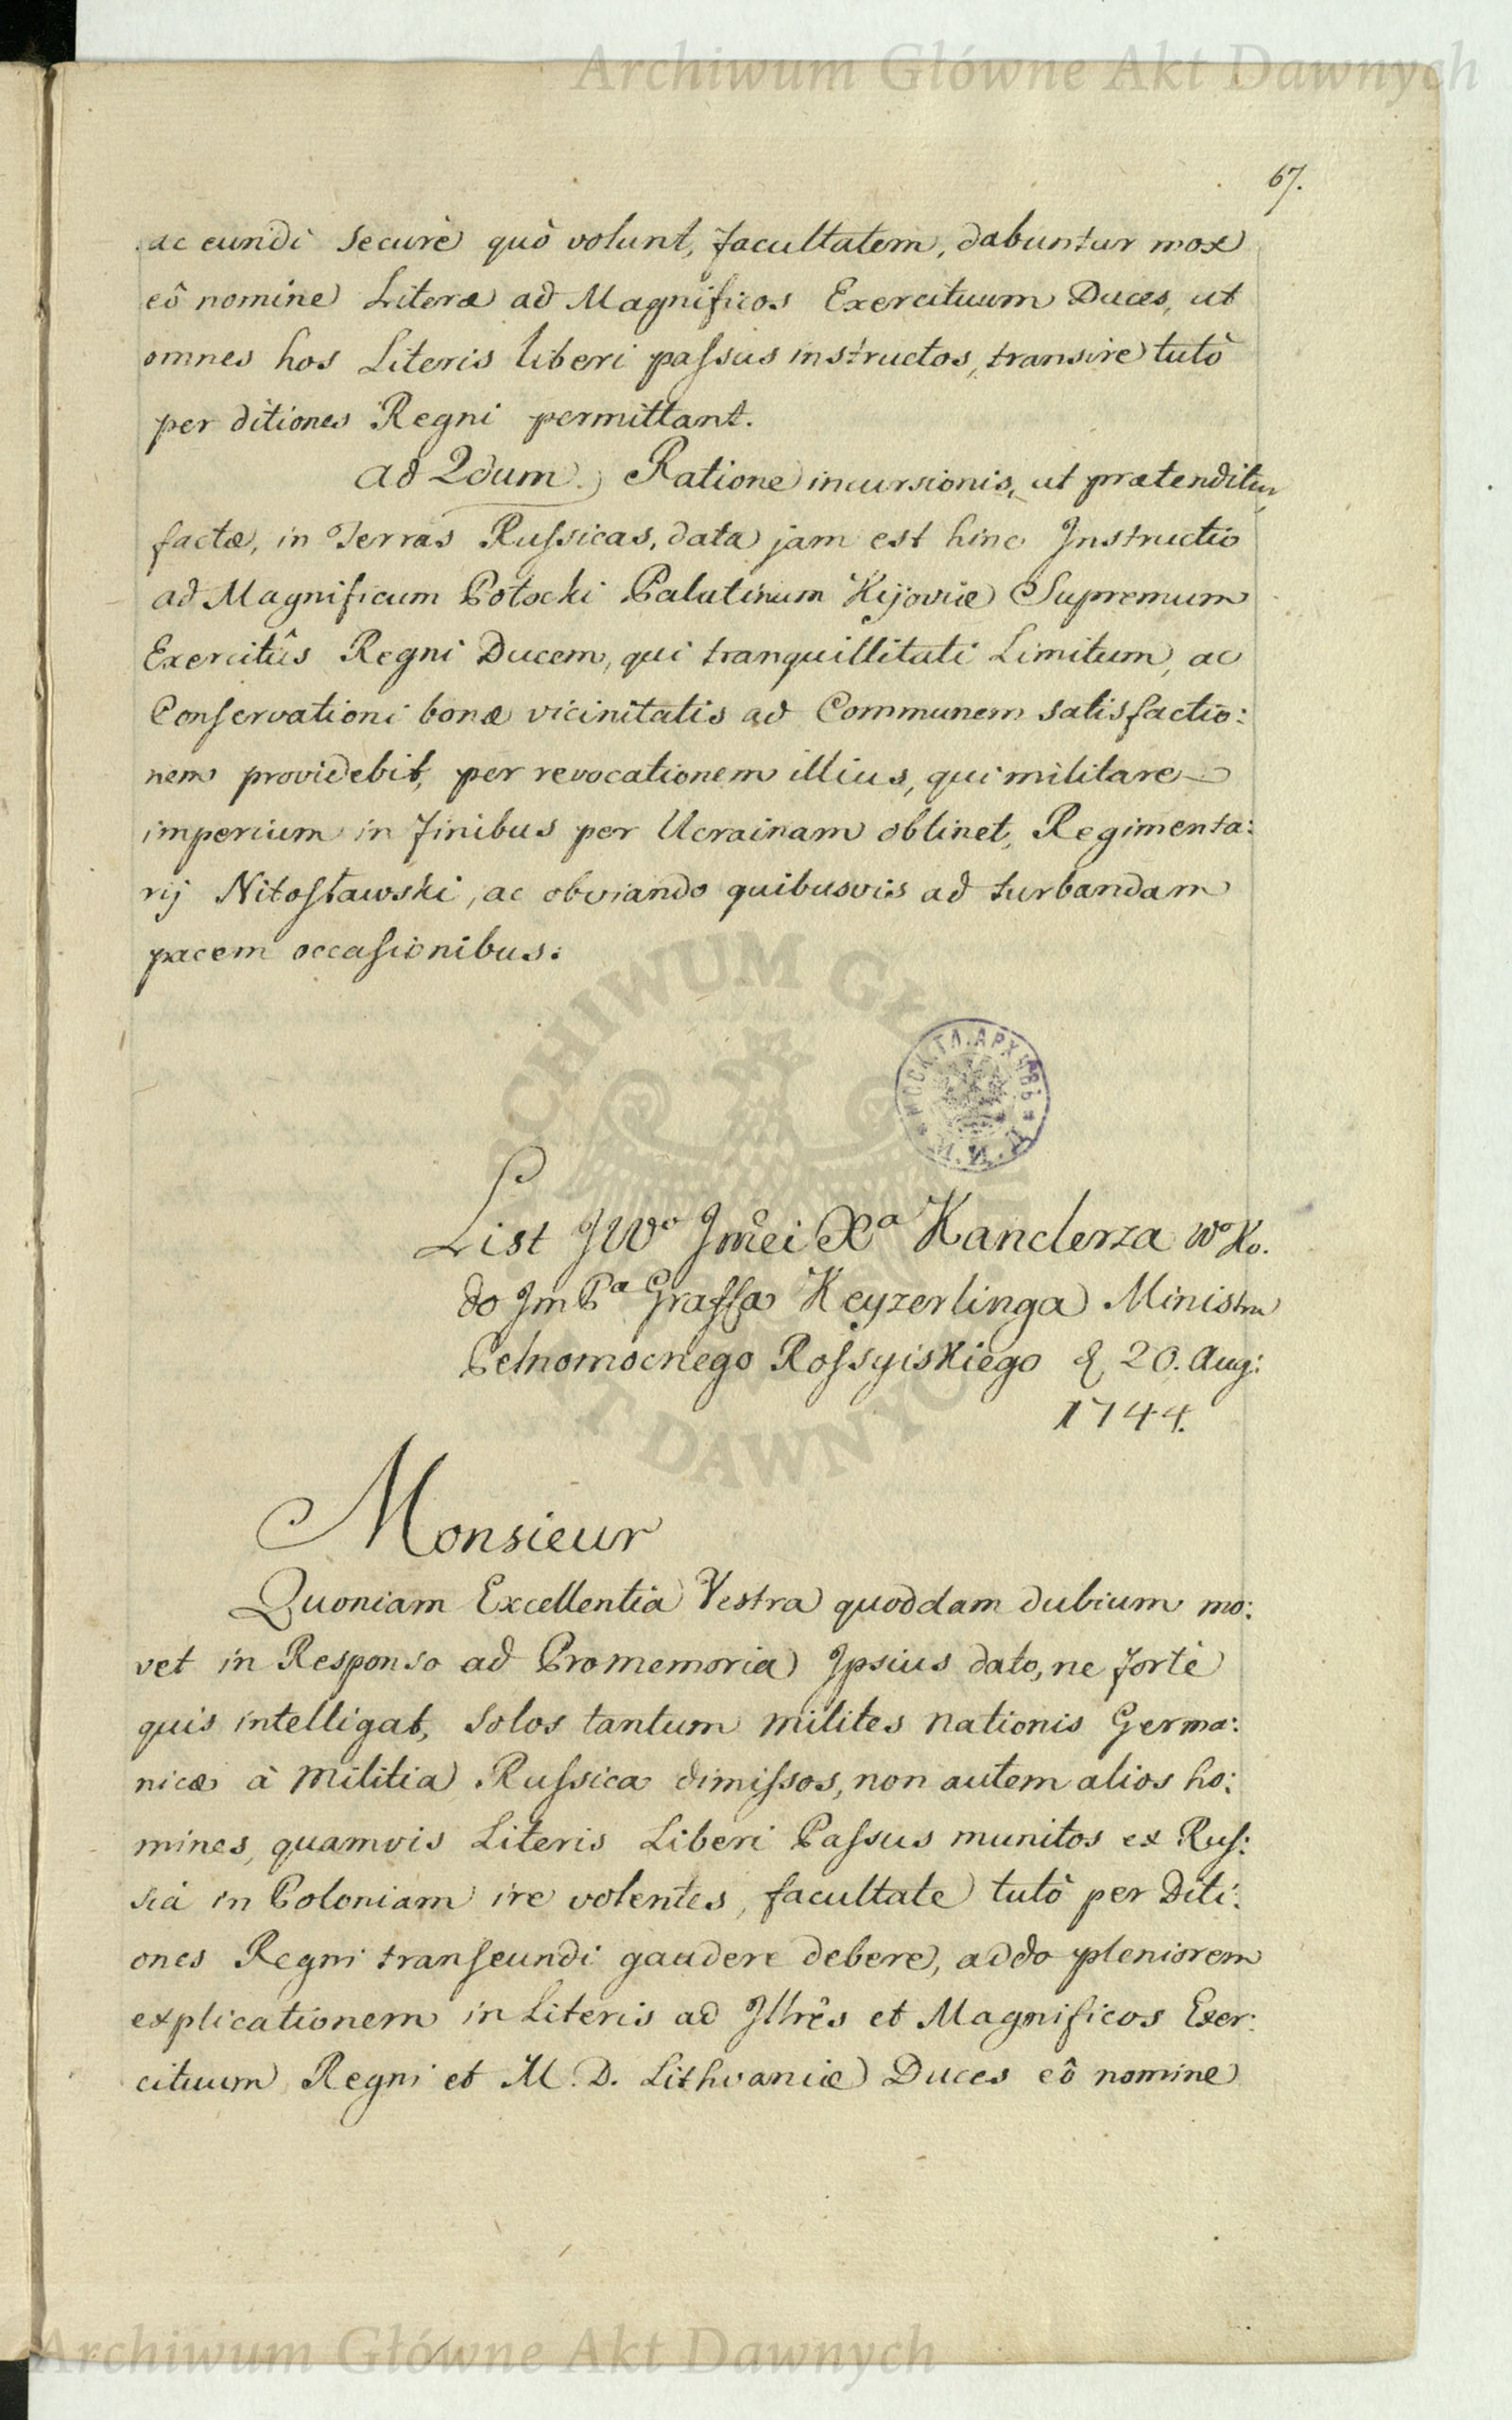 Archiwum Główne Akt Dawnych
67.
ac eundi securè quò volunt, facultatem, dabuntur mox
eô nomine Literæ ad Magnificos Exercituum Duces, ut
omnes hos Literis liberi paſsus instructos, transire tutò
per ditiones Regni permittant.
ad 2dum. Ratione incursionis, ut prætenditur
factæ, in Terras Ruſsicas, data jam est hinc Instructio
ad Magnificum Potocki Palatinum Kijoviæ Supremum
Exercitûs Regni Ducem, qui tranquillitati Limitum, ac
Conſervationi bonæ vicinitatis ad Communem satisfactio:
nem providebit, per revocationem illius, qui militare
imperium in finibus per Ucrainam obtinet, Regimenta:
rij Nitoſławski, ac obviando quibusvis ad turbandam
pacem occaſionibus.
ARCHIWUM GŁ
МОСК.ГЛ.АРХИВЪ
М.И.Д.
List JWo Jmċi Xa Kanclerza Wo Ko.
do Jm Pa Graffa Keyzerlinga Ministra
Pełnomocnego Roſsyiskiego d. 20. Aug:
1744.
AKT DAWNYC
Monsieur
Quoniam Excellentia Vestra quoddam dubium mo:
vet in Responso ad Promemoria Ipsius dato, ne fortè
quis intelligat, solos tantum milites nationis Germa:
nicæ à militia Ruſsica dimiſsos, non autem alios ho:
mines, quamvis Literis Liberi Paſsus munitos ex Ruſ:
siâ in Poloniam ire volentes, facultate tutò per Diti:
ones Regni tranſeundi gaudere debere, addo pleniorem
explicationem in Literis ad Illrês et Magnificos Exer:
cituum Regni et M. D. Lithvaniæ Duces eô nomine
Archiwum Główne Akt Dawnych